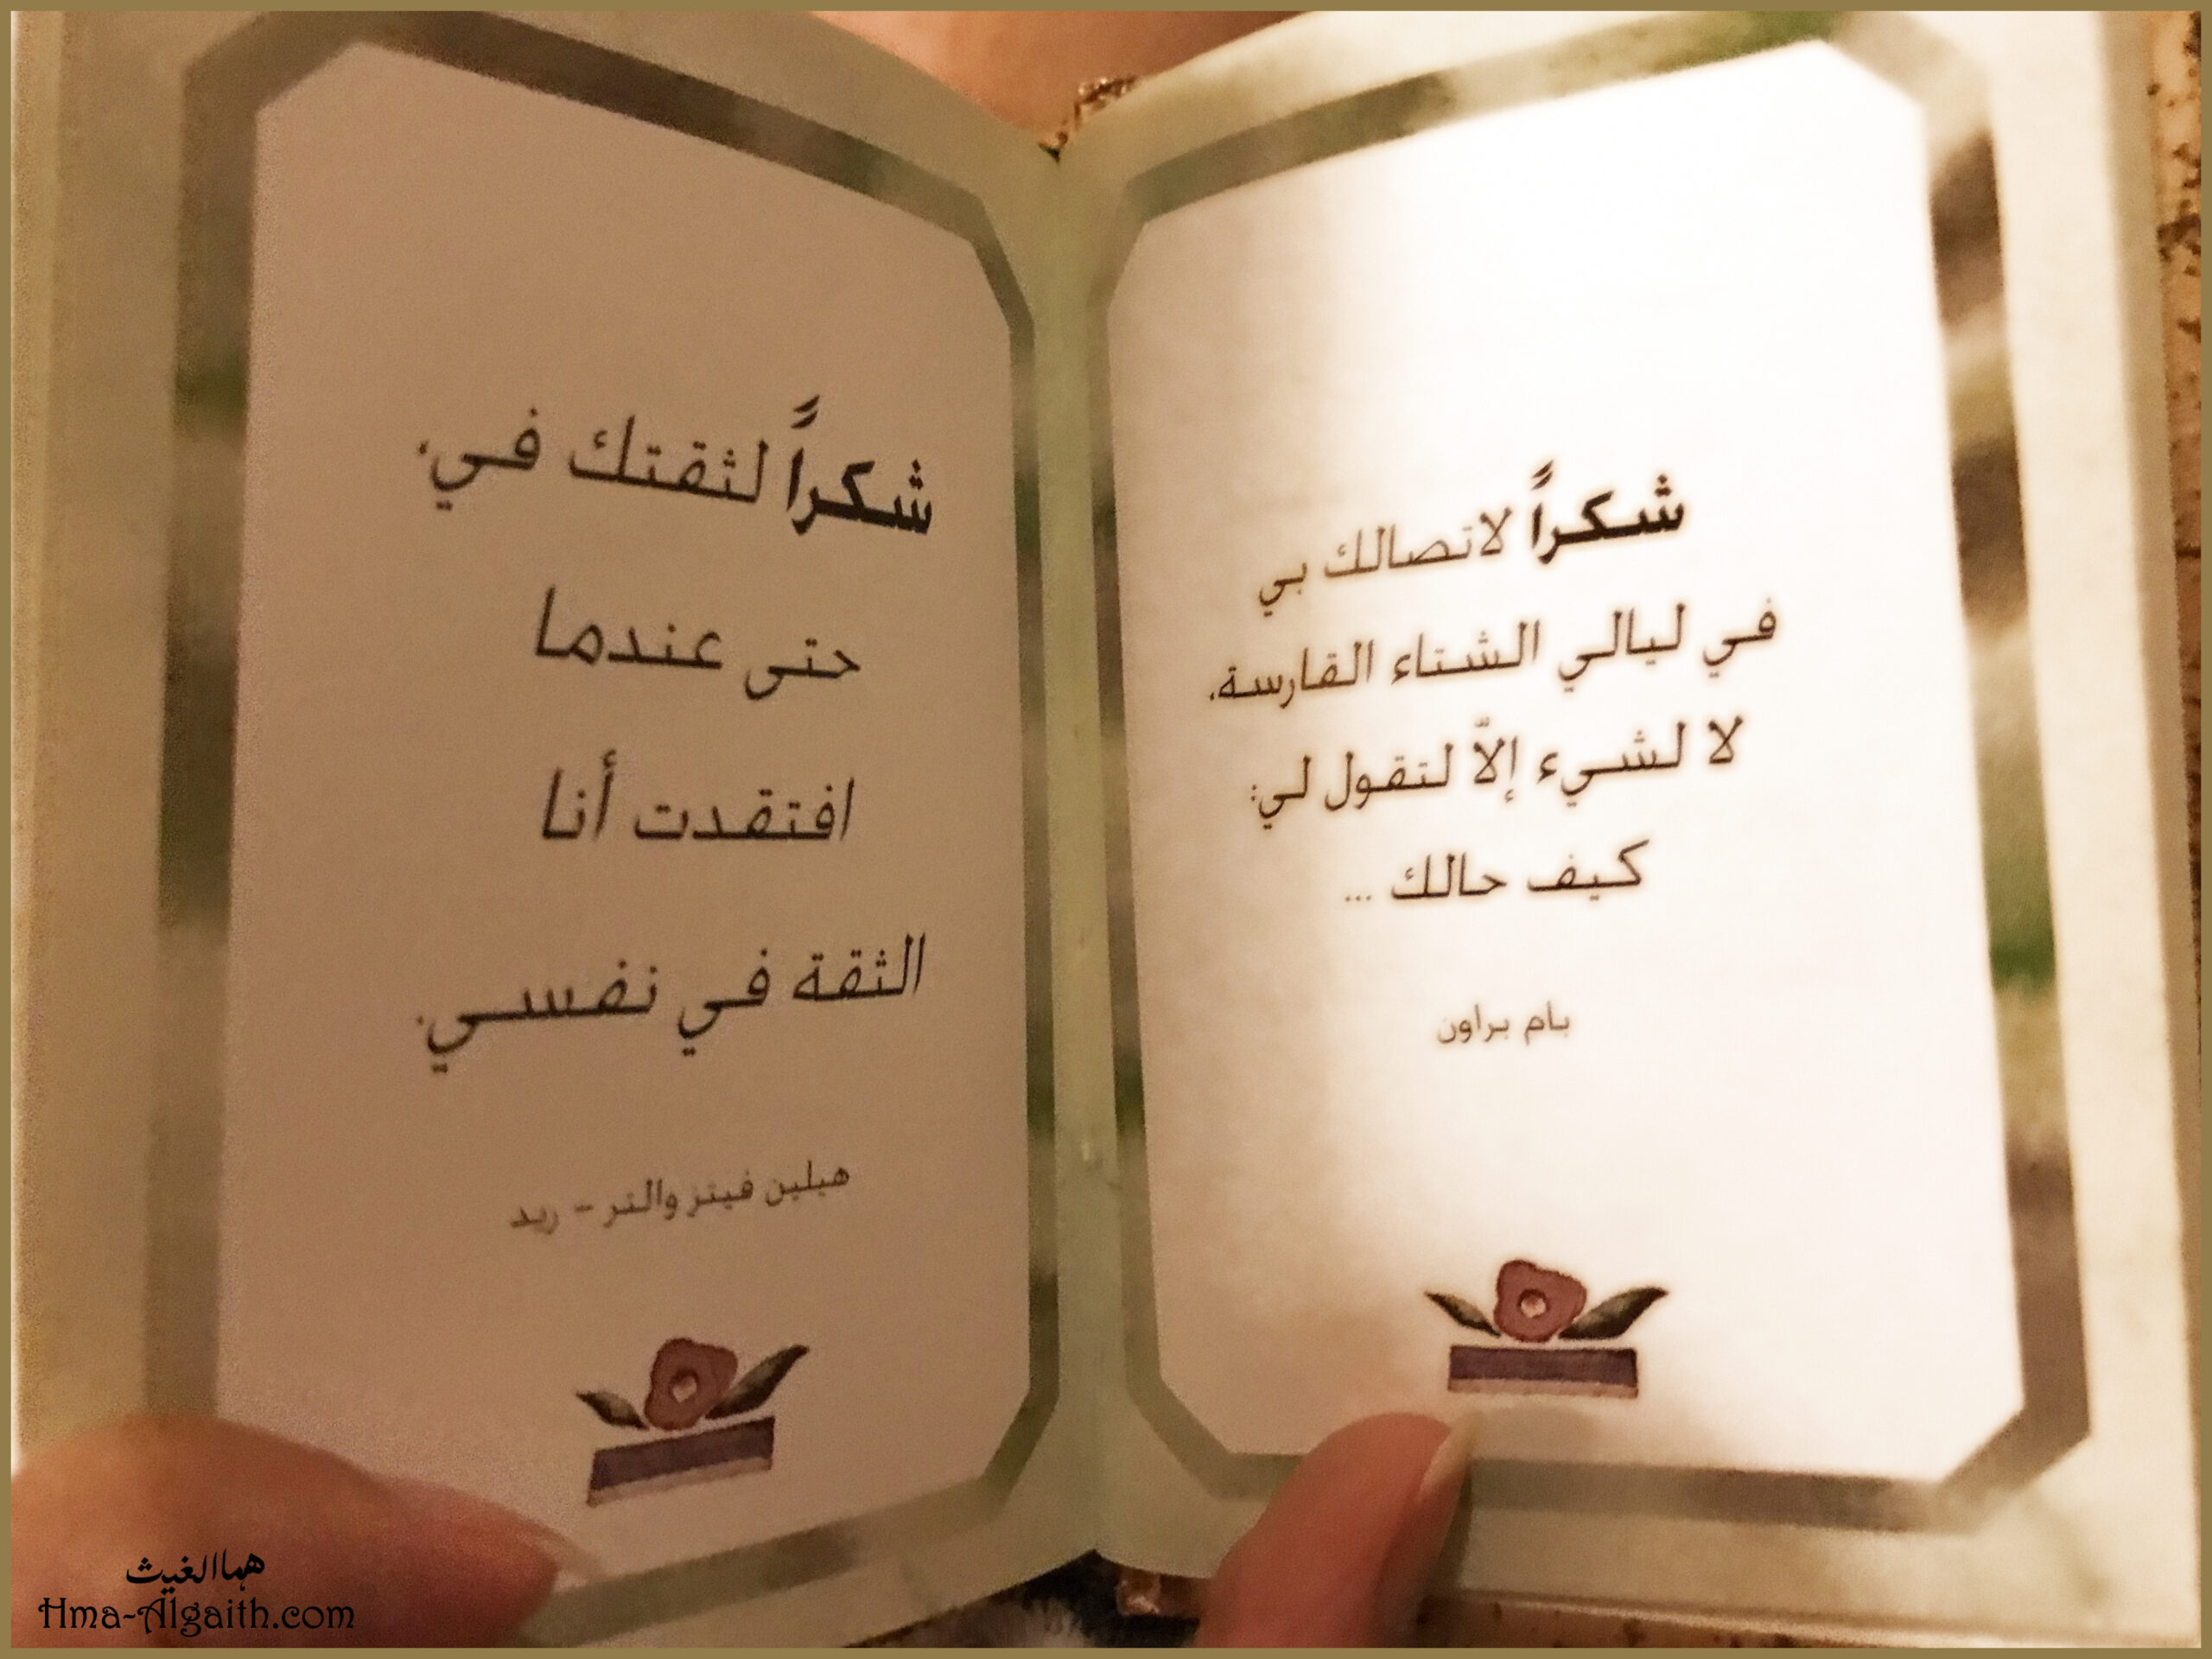 شكراً لاتصالك بي
في ليالي الشتاء القارسة،
لا لشيء إلاّ لتقول لي:
كيف حالك ...
بام براون
شكراً لثقتك في،
حتى عندما
افتقدت أنا
الثقة في نفسي.
هيلين فيتز والتر - ريد
هما الغيث
Hma-Algaith.com